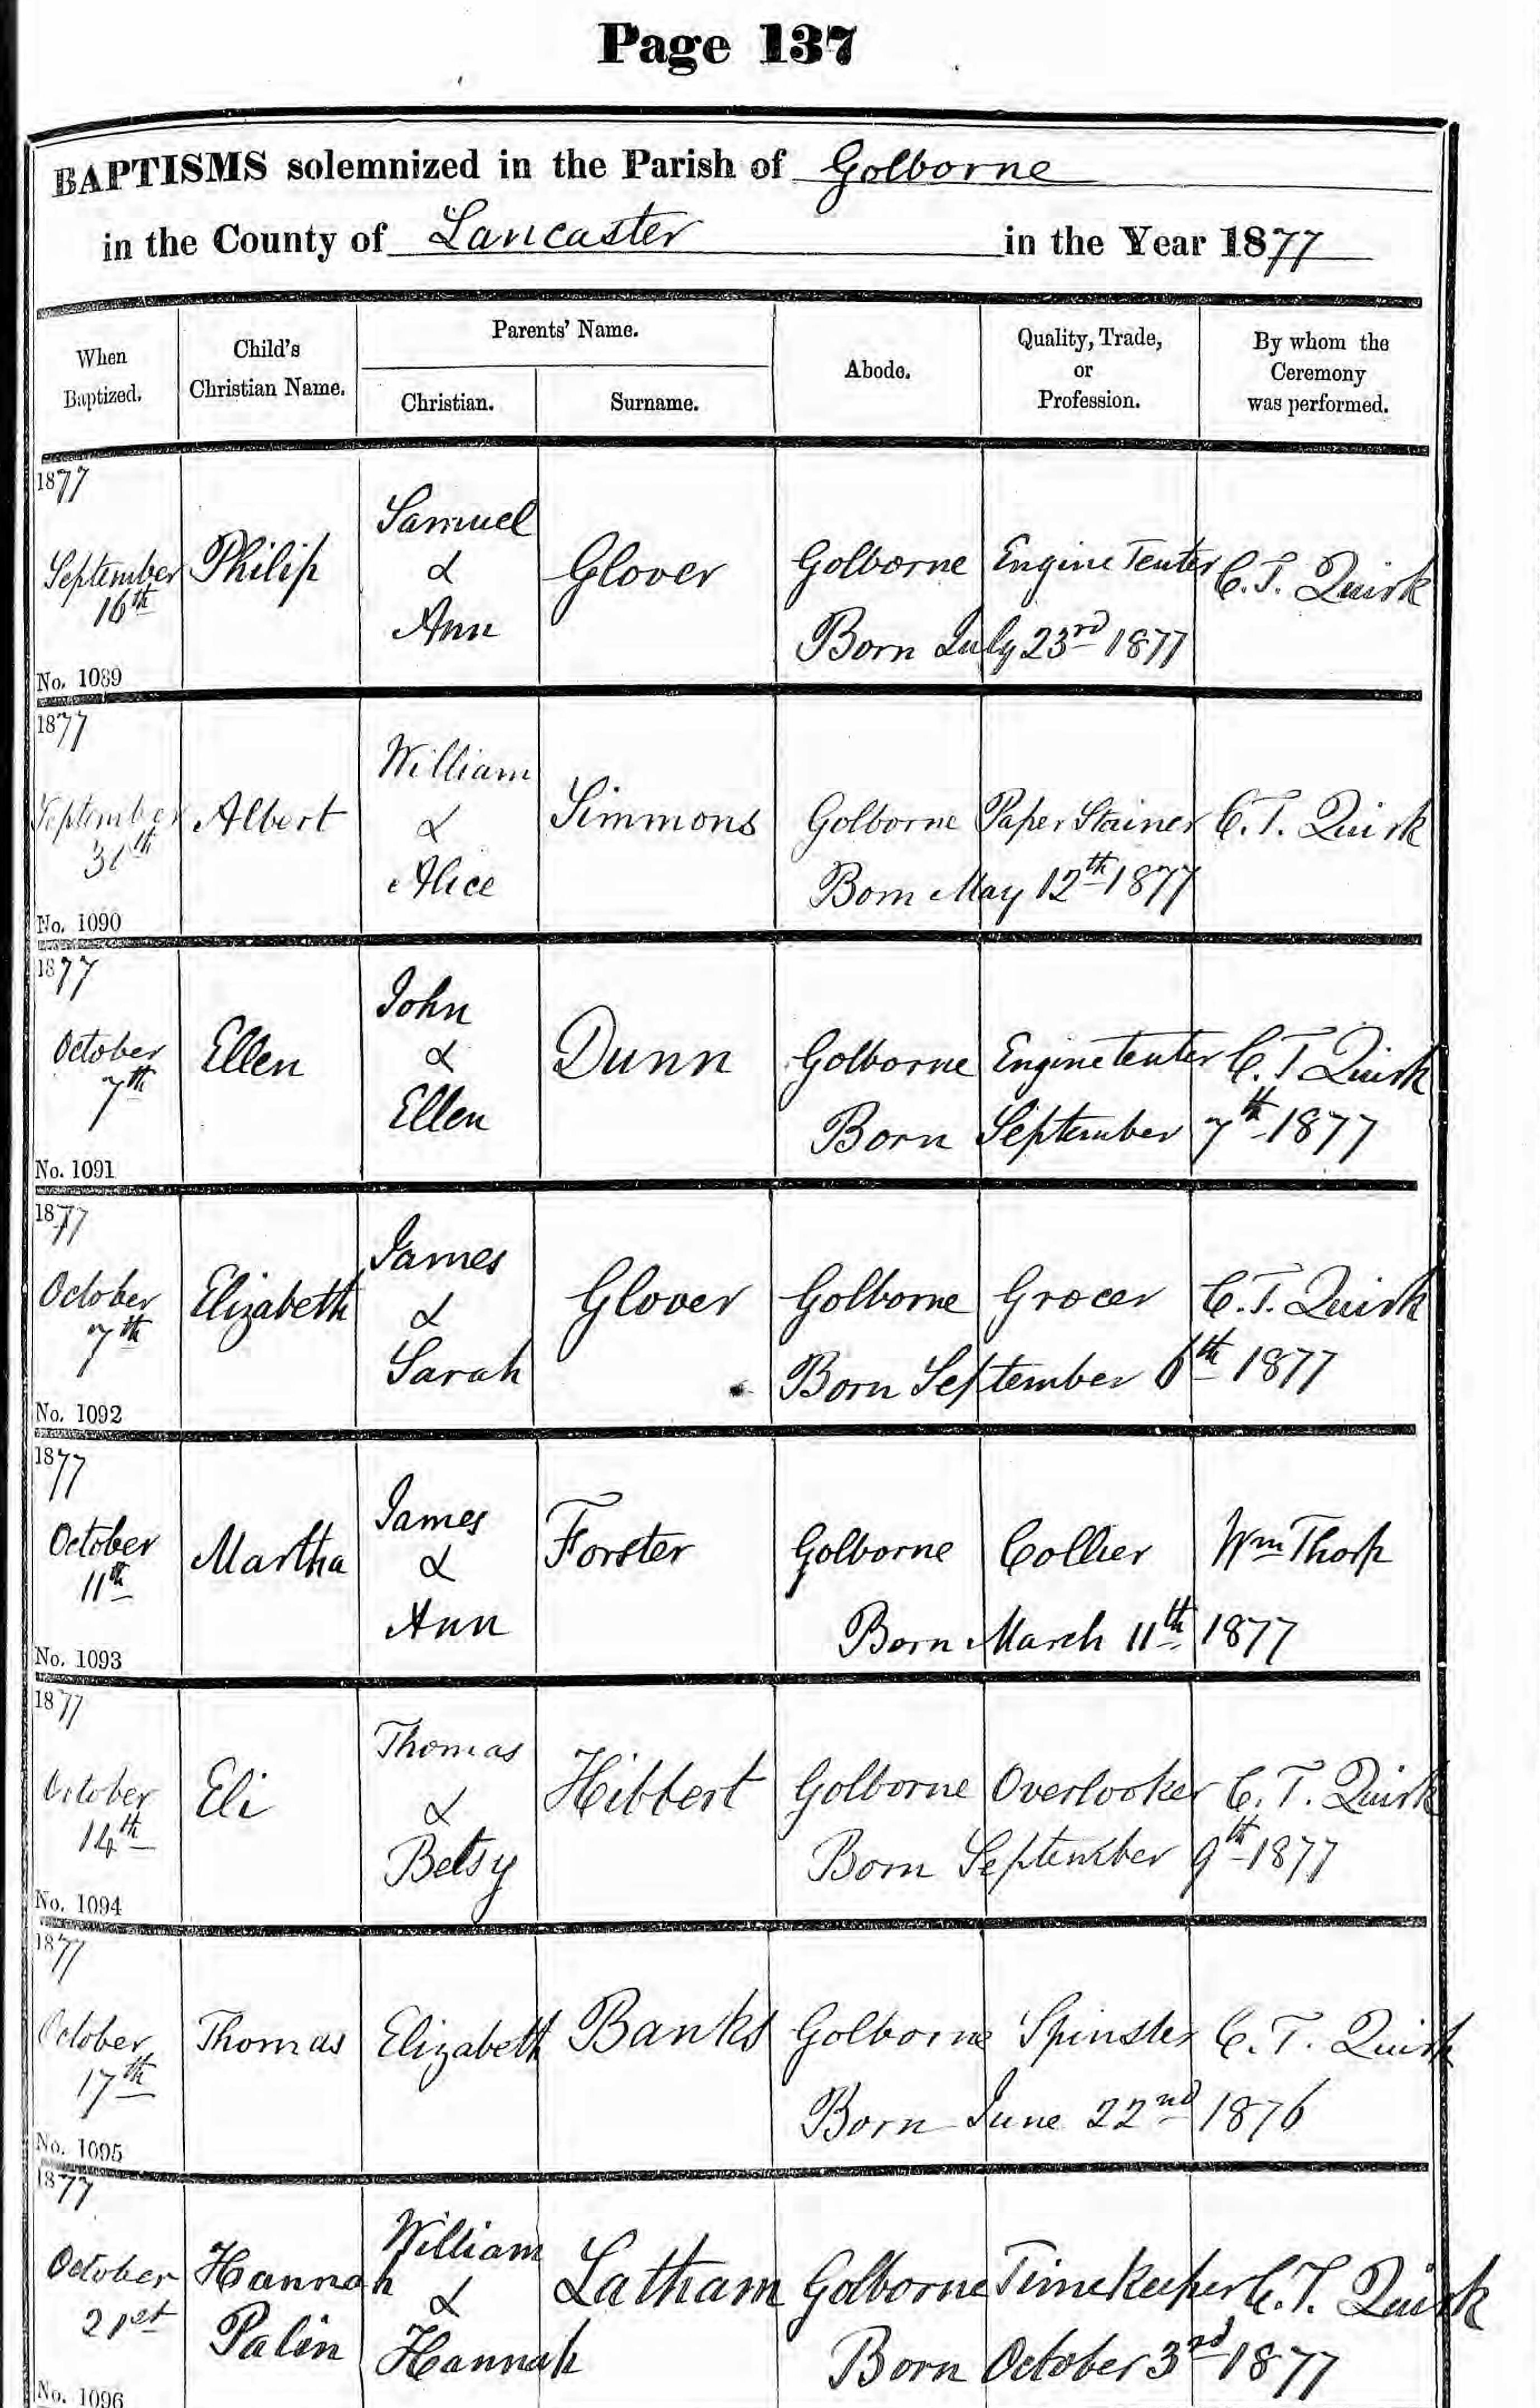 Page 137
BAPTISMS solemnized in the Parish of Golborne
in the County of Lancaster in the Year 1877
When Baptized.
Child's Christian Name.
Parents' Name.
Christian.
Surname.
Abode.
Quality, Trade, or Profession.
By whom the Ceremony was performed.
1877
September 16th
Philip
Samuel & Ann
Glover
Golborne
Engine Tenter
C. T. Quirk
Born July 23rd 1877
No. 1089
1877
September
Albert
William & Alice
Simmons
Golborne
Paper Stainer
C. T. Quirk
Born May 12th 1877
No. 1090
1877
October 7th
Ellen
John & Ellen
Dunn
Golborne
Engine tenter
C. T Quirk
Born September 7th 1877
No. 1091
1877
October 7th
Elizabeth
James & Sarah
Glover
Golborne
Grocer
C. T. Quirk
Born September 6th 1877
No. 1092
1877
October 11th
Martha
James & Ann
Forster
Golborne
Collier
Wm Thorp
Born March 11th 1877
No. 1093
1877
October 14th
Eli
Thomas & Betsy
Hibbert
Golborne
Overlooker
C. T. Quirk
Born September 9th 1877
No. 1094
1877
October 17th
Thomas
Elizabeth
Banks
Golborne
Spinster
C. T. Quirk
Born June 22nd 1876
No. 1095
1877
October 21st
Hannah Palin
William & Hannah
Latham
Golborne
Timekeeper
C. T. Quirk
Born October 3rd 1877
No. 1096